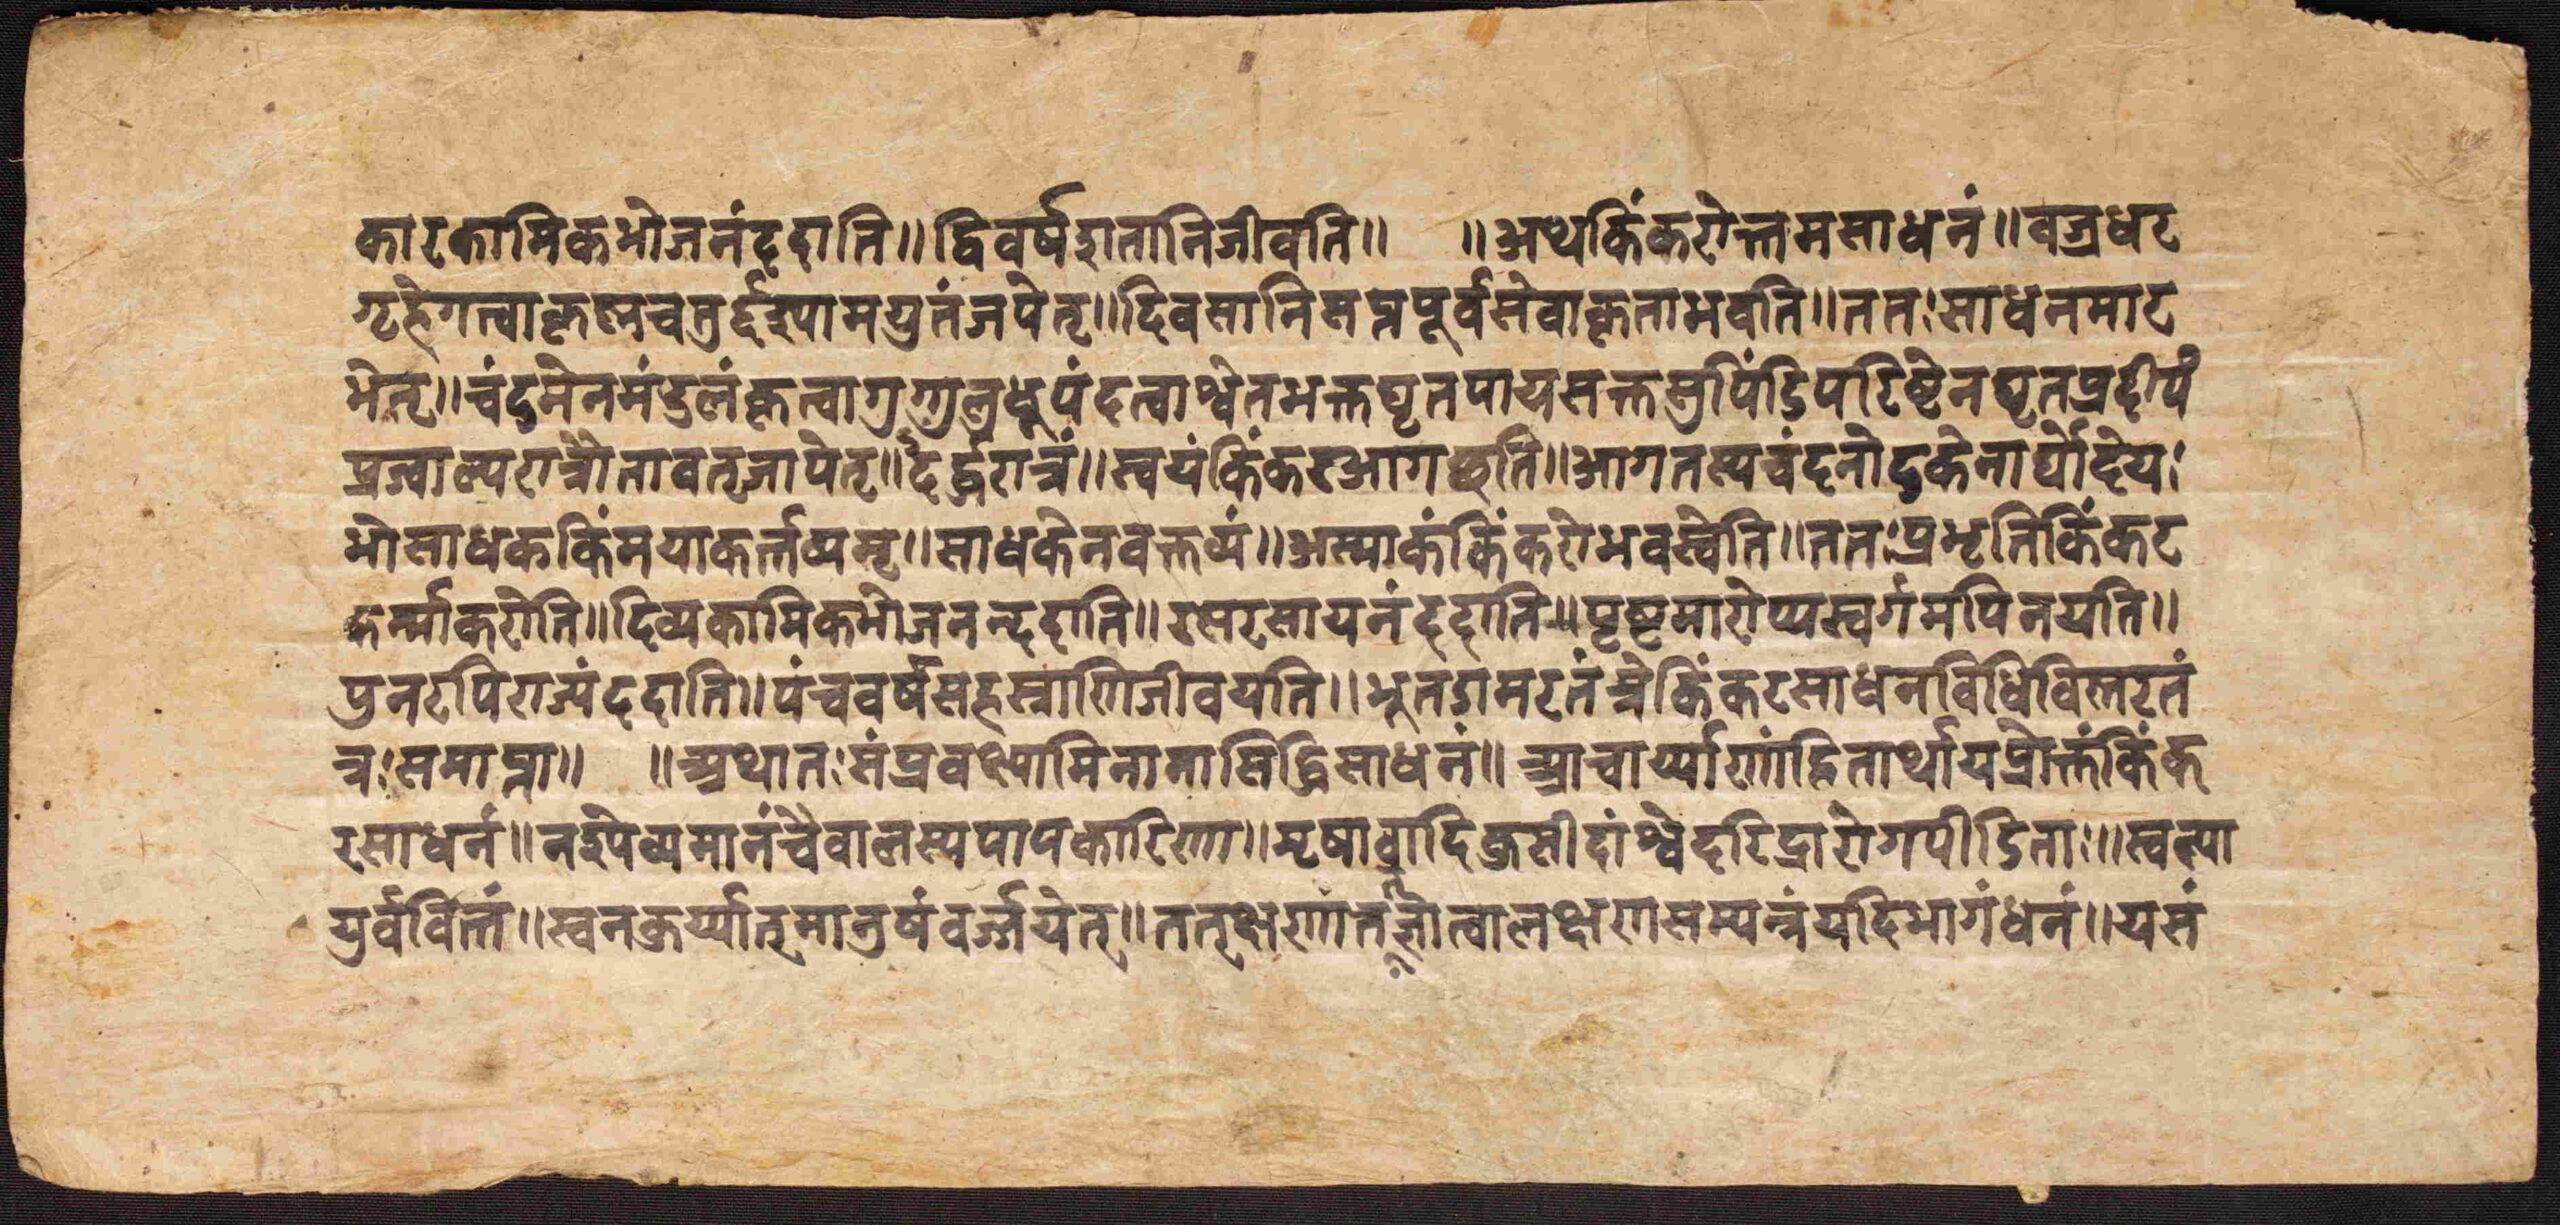 कारकामिकभोजनंददाति॥द्विवर्षशतानिजीवति॥ ॥अथकिंकरोत्तमसाधनं॥वज्रधर
गृहेगत्वाकृष्णचतुर्द्दश्यामयुतंजपेत्॥दिवसानिसप्तपूर्वसेवाकृताभवति॥ततःसाधनमार
भेत्॥चंदनेनमंडलंकृत्वागुग्गुलुधूपंदत्वाश्वेतभक्तघृतपायसक्तसुपिंडिपरिष्टेनघृतप्रदीपं
प्रज्वाल्यरात्रौतावत्जापेत्॥दर्द्धरात्रं॥स्वयंकिंकरआगछति॥आगतस्यचंदनोदकेनार्घ्योदेयः
भोसाधककिंमयाकर्त्तव्यम्॥साधकेनवक्तव्यं॥अस्माकंकिंकरोभवस्वेति॥ततःप्रभृतिकिंकर
कर्म्माकरोति॥दिव्यकामिकभोजनन्ददाति॥रसरसायनंददाति॥पृष्टमारोप्यस्वर्गमपिनयति॥
पुनरपिराज्यंददाति॥पंचवर्षसहस्त्राणिजीवयति॥भूतडामरतंत्रेकिंकरसाधनविधिविस्तरतं
त्रःसमाप्ता॥ ॥अथातःसंप्रवक्ष्यामिनानासिद्धिसाधनं॥आचार्य्याणांहितार्थायप्रोक्तंकिंक
रसाधनं॥नश्पेव्यमानंचैवालस्यपापकारिणा॥मृषावादिकुसीदांश्चेदरिद्रारोगपीडिताः॥स्वल्पा
युर्वर्वित्तं॥स्वनकुर्य्यात्मानुषंवर्ज्जयेत्॥तत्क्षणांतज्ञात्वालक्षणसम्पन्नंयदिभागंधनं॥यसं